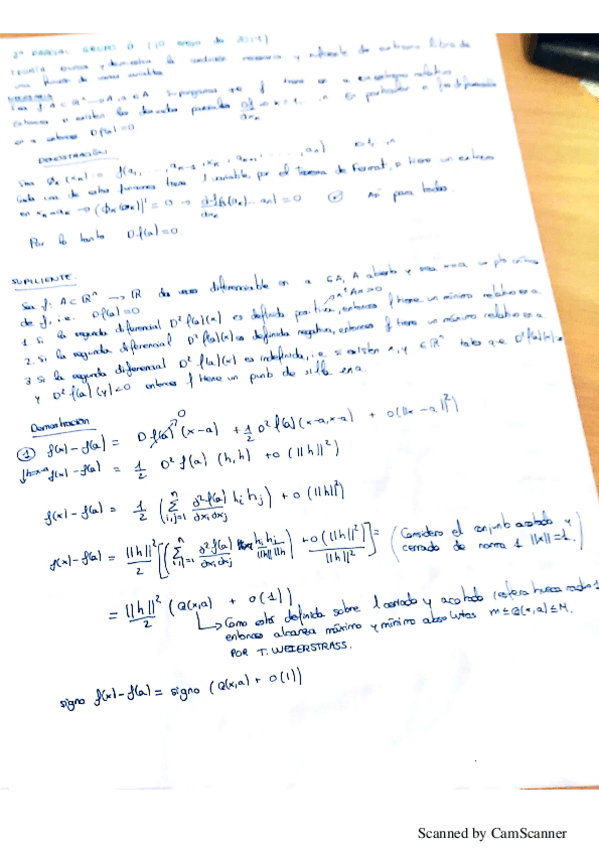 2º PARCIAL GRUPO
TEORÍA condición necesaria y suficiente de extremo libre de
una función de varias variables.
f A⊂ℝⁿ → A, a∈A Supongamos que f tiene en a un extremo relativo
Entonces si existen las derivadas parciales ∂f/∂xₙ = En particular si f es diferenciable
en a entonces Df(a)=0.
DEMOSTRACIÓN:
Sea φₖ(xₖ) = f(a₁, ..., aₖ₋₁, xₖ, aₖ₊₁, ..., aₙ)
Cada una de estas funciones tiene 1 variable, por el Teorema de Fermat, si tiene un extremo
en xₖ=aₖ → = 0 → (a₁ ... aₙ)=0 Así para todas.
Por lo tanto Df(a)=0.
SUFICIENTE.
Sea f: A⊂ℝⁿ → ℝ dos veces diferenciable en a∈A, A abierto y sea un pto crítico
de f, i.e. Df(a)=0.
1. Si la segunda diferencial D²f(a)(x) es definida positiva, entonces f tiene un mínimo relativo en a
2. Si la segunda diferencial D²f(a)(x) es definida negativa, entonces f tiene un máximo relativo en a
3 Si la segunda diferencial D²f(a)(x) es indefinida, i.e. si existen x,y ∈ ℝⁿ tales que
y D²f(a)(y)<0 entonces f tiene un punto de silla en a.
Demostración
① f(x) - f(a) = Df(a)(x-a) + 1/2 D²f(a)(x-a,x-a) + o(||x-a||²)
f(x)-f(a) = 1/2 D²f(a)(h,h) + o(||h||²)
f(x)-f(a) = 1/2 (∑ⁿᵢ,ⱼ₌₁ ∂²f(a)/∂xᵢ∂xⱼ hᵢ hⱼ) + o(||h||²)
f(x)-f(a) = ||h||²/2 [(∑ⁿᵢ,ⱼ₌₁ ∂²f(a)/∂xᵢ∂xⱼ hᵢhⱼ/||h||||h||) + o(||h||²)/||h||²] = (Considero el conjunto acotado y
cerrado de norma 1 ||x||=1.)
= ||h||²/2 (Q(x,a) + o(1))
↳ Como está definida sobre 1 cerrado y acotado (esfera hueca radio 1
entonces alcanza máximo y mínimo absolutos m≤Q(x,a)≤M.
POR T. WEIERSTRASS.
signo f(x)-f(a) = signo (Q(x,a) + o(1))
Scanned by CamScanner